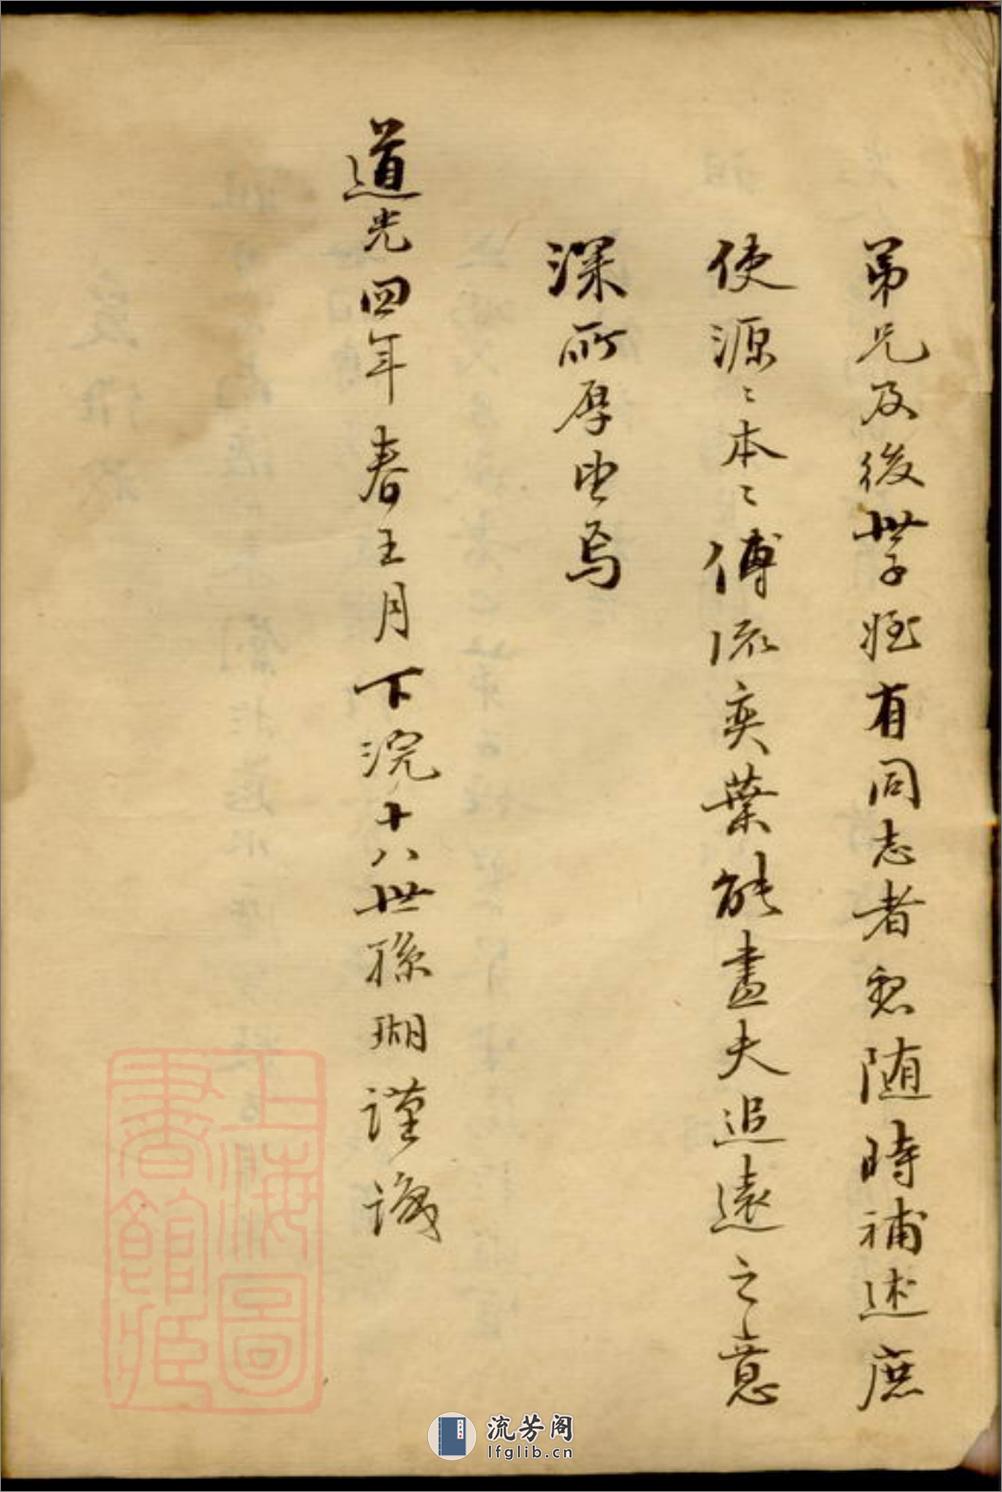 弟兄及後世子姪有同志者恕随時補述庶
使源〻本〻傳流奕葉能盡夫追遠之意
深所厚望焉
道光四年春王月下浣十八世孫瑚謹識
上海圖
書館藏
流芳阁
lfglib.cn